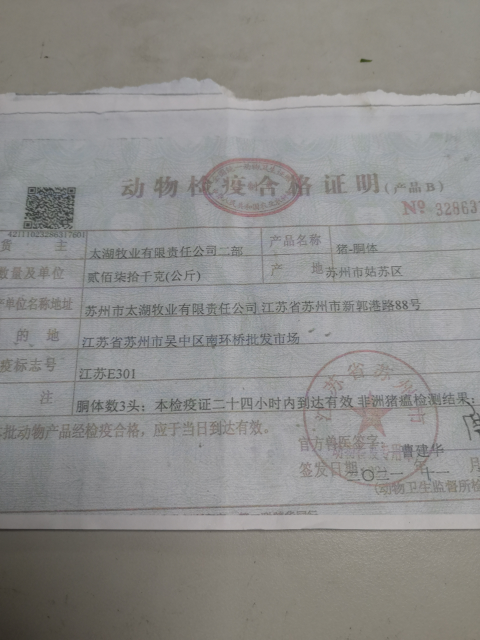 动物检疫合格证明(产品B)
№ 32863
42111023298317801
货 主 太湖牧业有限责任公司二部 产品名称 猪-胴体
数量及单位 贰佰柒拾千克(公斤) 产 地 苏州市姑苏区
产单位名称地址 苏州市太湖牧业有限责任公司 江苏省苏州市新郭港路88号
的 地 江苏省苏州市吴中区南环桥批发市场
疫标志号 江苏E301
注 胴体数3头; 本检疫证二十四小时内到达有效 非洲猪瘟检测结果:
本批动物产品经检疫合格，应于当日到达有效。
江苏省苏州市
官方兽医签字: 曹建华
签发日期: 二〇二一 年 十一 月
(动物卫生监督所检